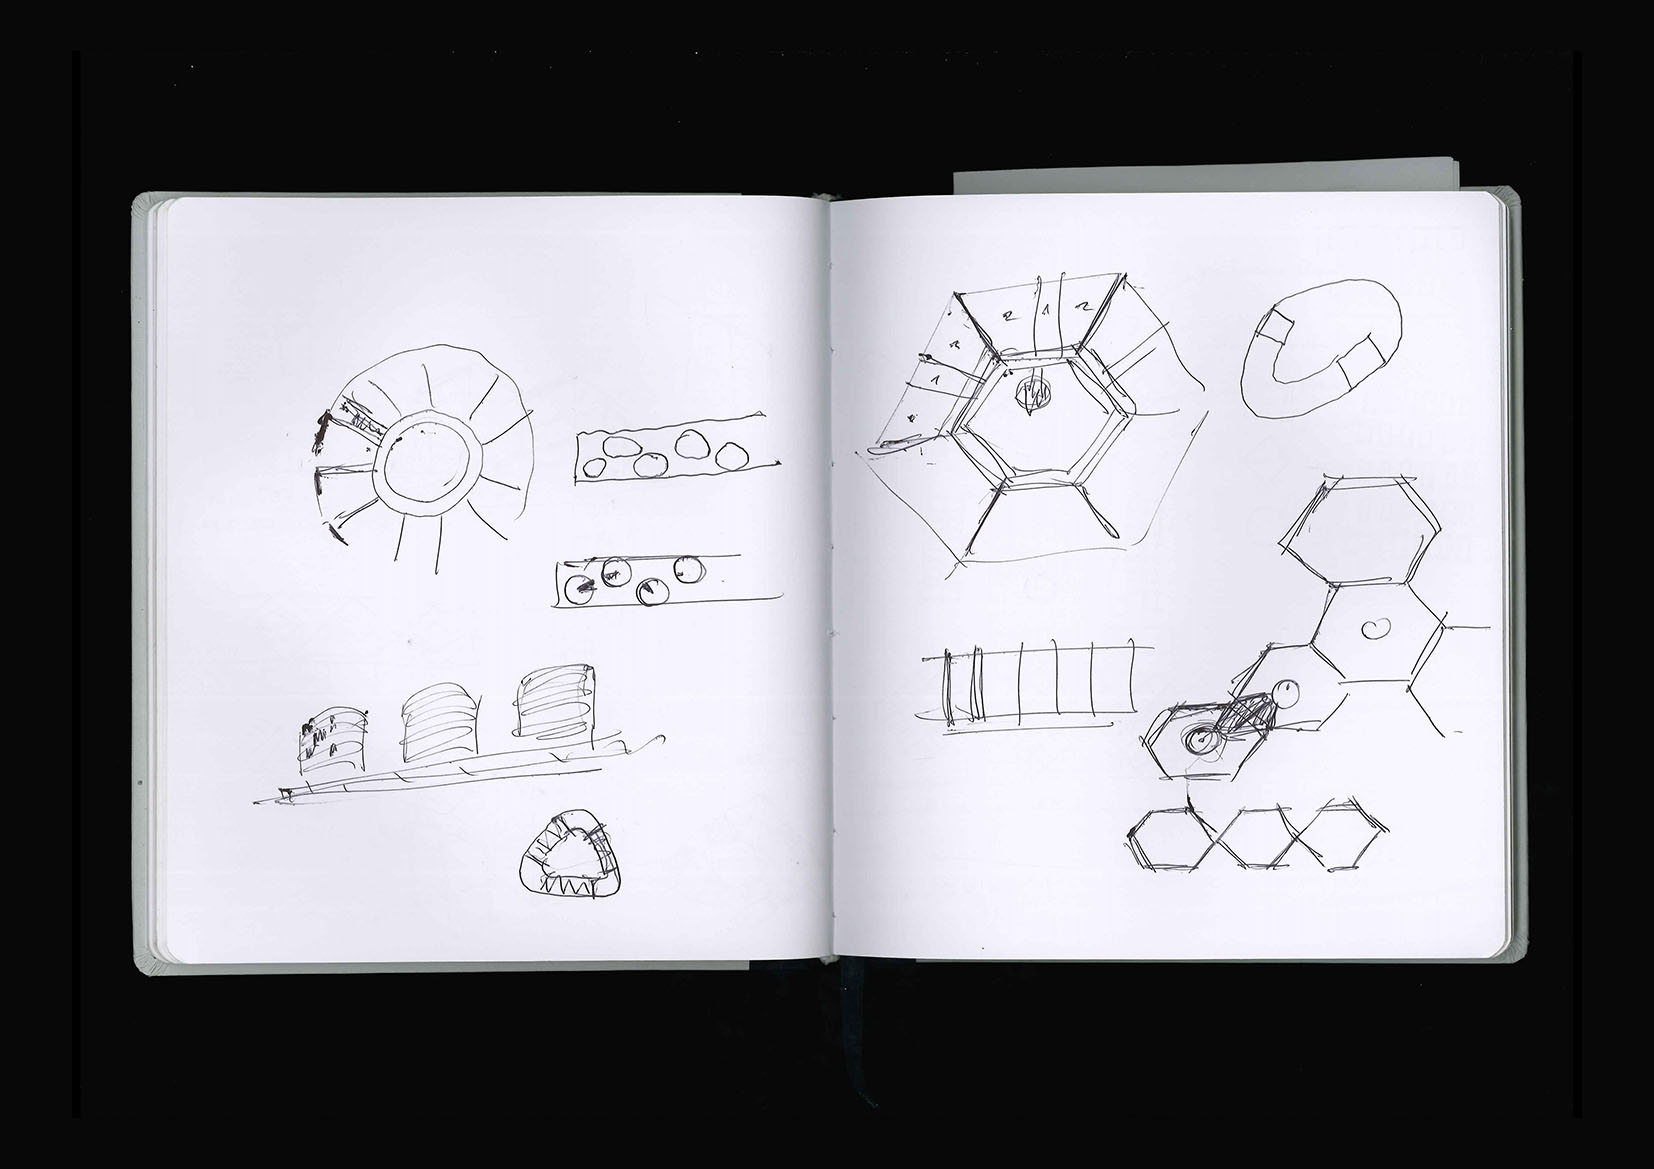 2 1 2
2
1